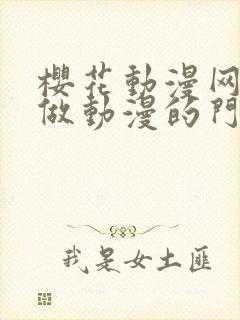 櫻花動漫网
做動漫的門
我是女土匪